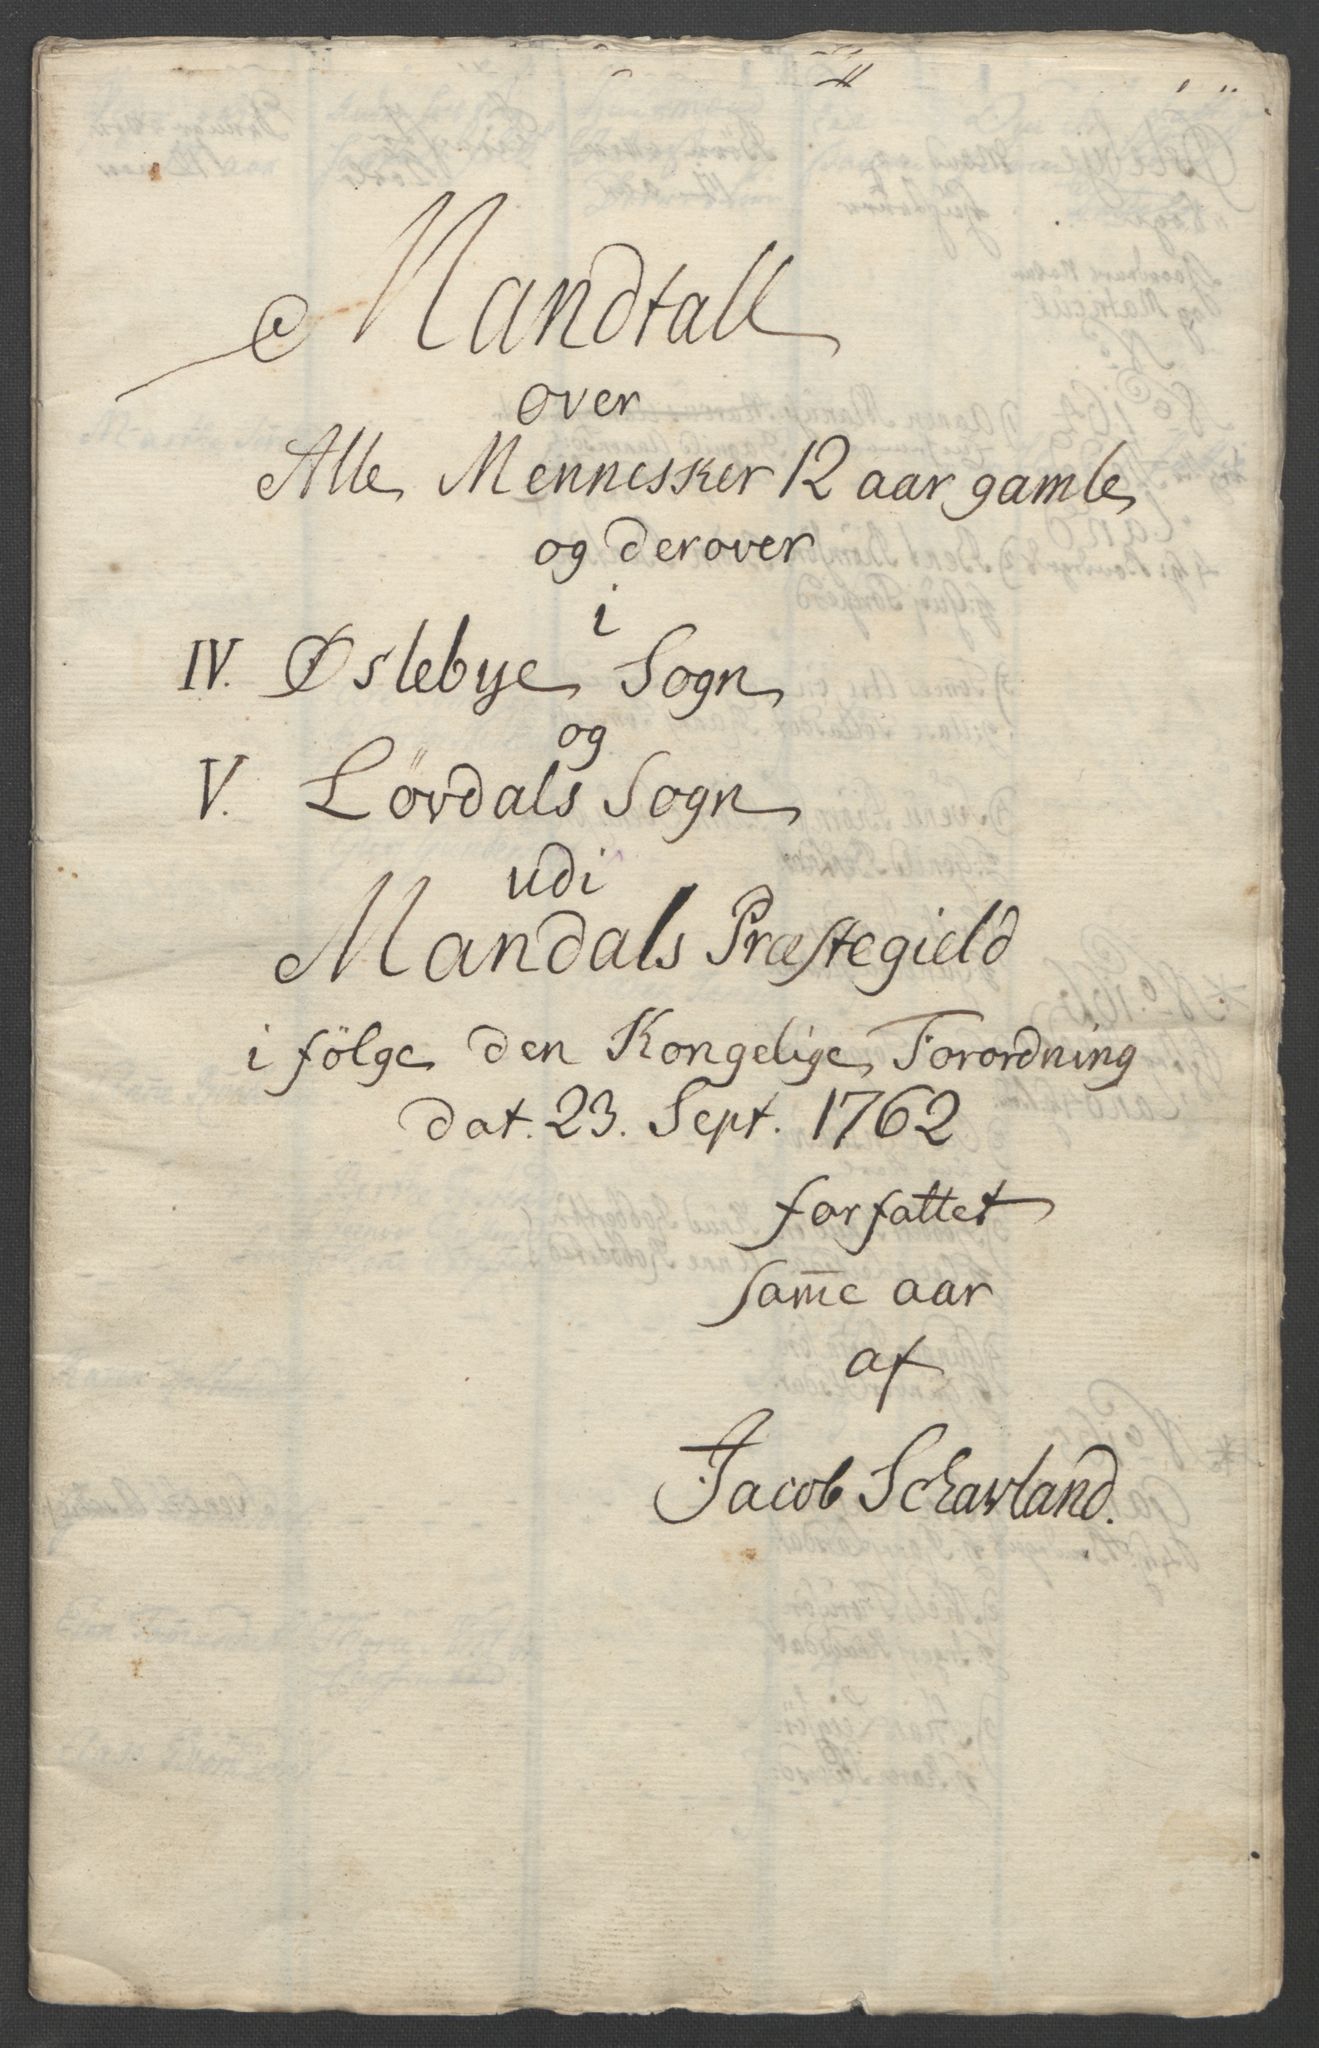 Mandtall
over
Alle Mennesker 12 aar gamle
og derover
i
IV. Øslebye Sogn
og
V. Løvdals Sogn
udi
Mandals Præstegield
i følge den Kongelige Forordning
dat. 23. Sept. 1762
forfattet
sam̄e aar
af
Jacob Scharvland.